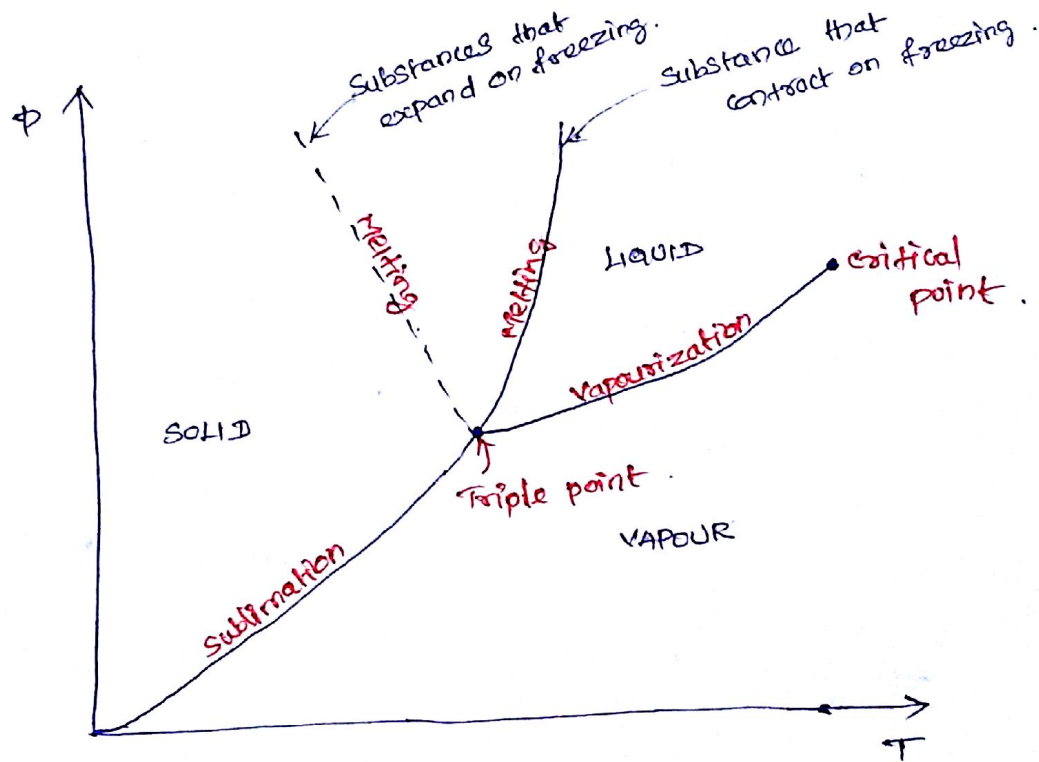 Substances that
expand on freezing.
Substance that
contract on freezing.
P
Melting
Melting
LIQUID
Critical
point.
Vapourization
SOLID
Triple point.
VAPOUR
Sublimation
T